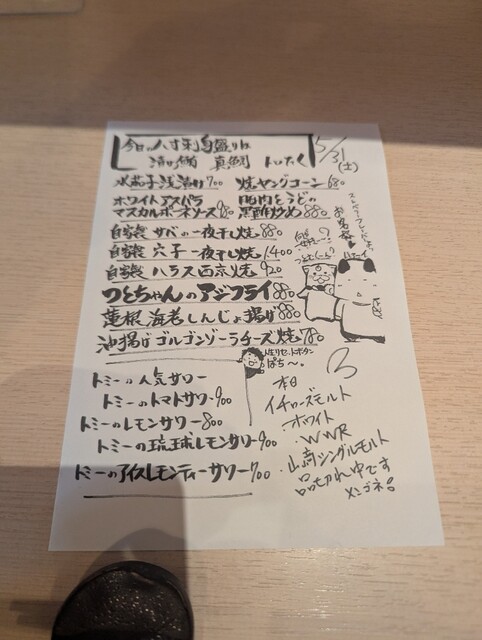 今日の八寸刺身盛りは
5/31
(土)
漬け鮪 真鯛 トロたく
水茄子浅漬け 700
焼ヤングコーン 680
ホワイトアスパラ
マスカルポーネソース 980
豚肉とうどの
黒酢炒め 880
自家製 サバの一夜干し焼 880
自家製 穴子一夜干し焼 1,400
自家製 ハラス西京焼 920
つとちゃんのアジフライ 880
蓮根海老しんじょ揚げ 880
油揚げゴルゴンゾーラチーズ焼 780
お客様
人生リセットボタン
ぽち〜。
トミーの人気サワー
トミーのトマトサワー 900
トミーのレモンサワー 800
トミーの琉球レモンサワー 900
トミーのアイスレモンティーサワー 700
本日
イチローズモルト
ホワイト
・WWR
・山崎シングルモルト
品切れ中です
メンゴネ!